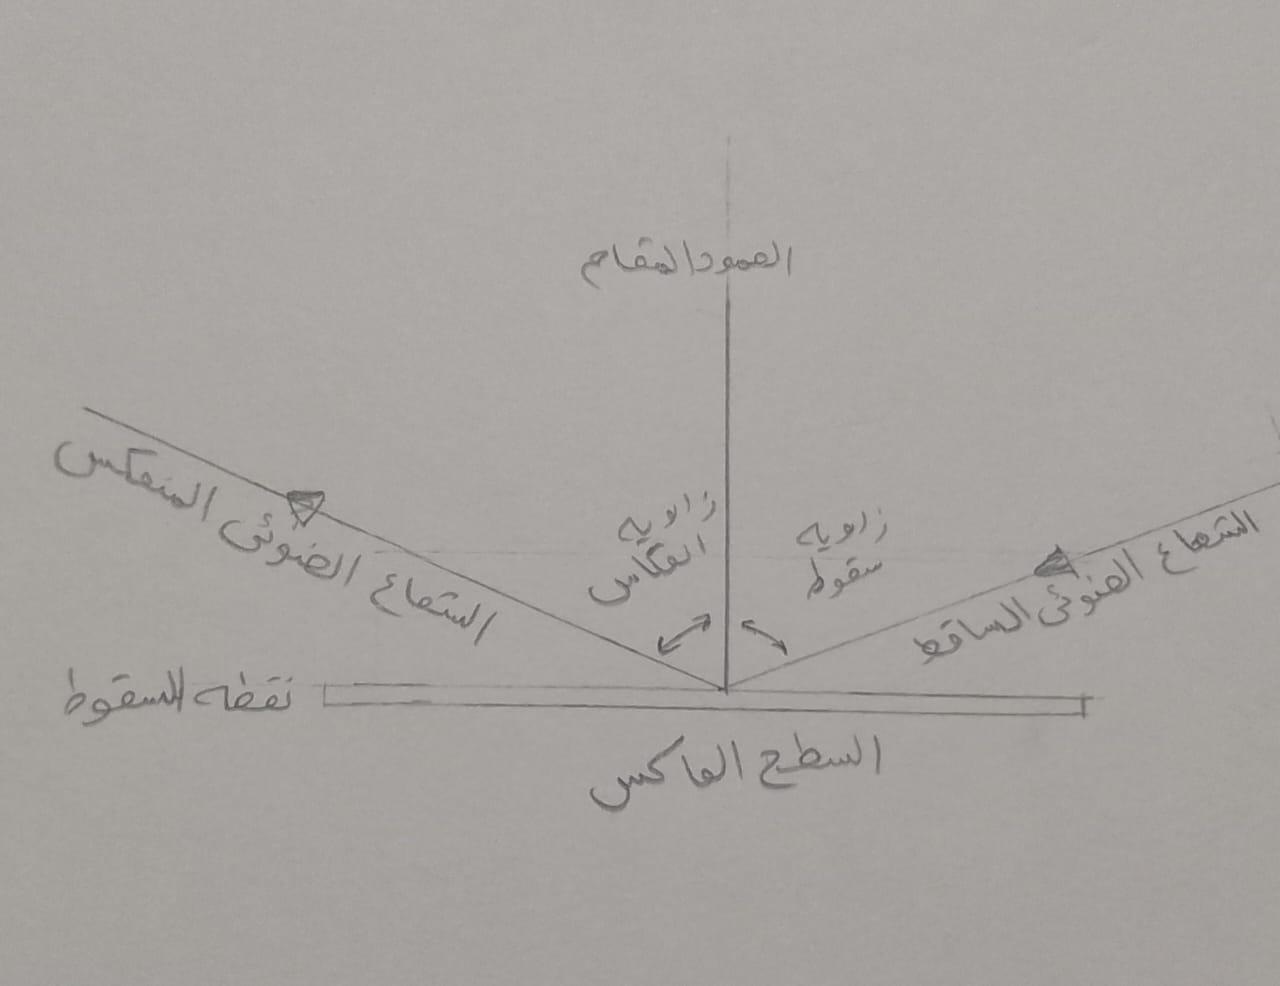 العمود المقام
زاويه
سقوط
زاويه
انعكاس
الشعاع الضوئى الساقط
الشعاع الضوئى المنعكس
نقطه السقوط
السطح العاكس